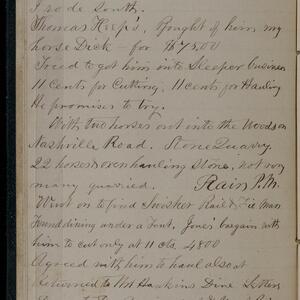 I rode South.
Thomas Heep's, Bought of him my
horse Dick - for $75.00
Tried to get him into Sleeper business
11 cents for Cutting, 11 cents for Hauling
He promises to try.
With two horses out into the Woods on
Nashville Road. Stone Quarry.
22 horses & oxen hauling stone, not very
many quarried. Rain P.M.
Went on to find Rail & Tie Man
Found dining under a Tent, Jones' bargain with
him to cut only at 11 cts 4800
Agreed with him to haul also at
returned to Hawkins